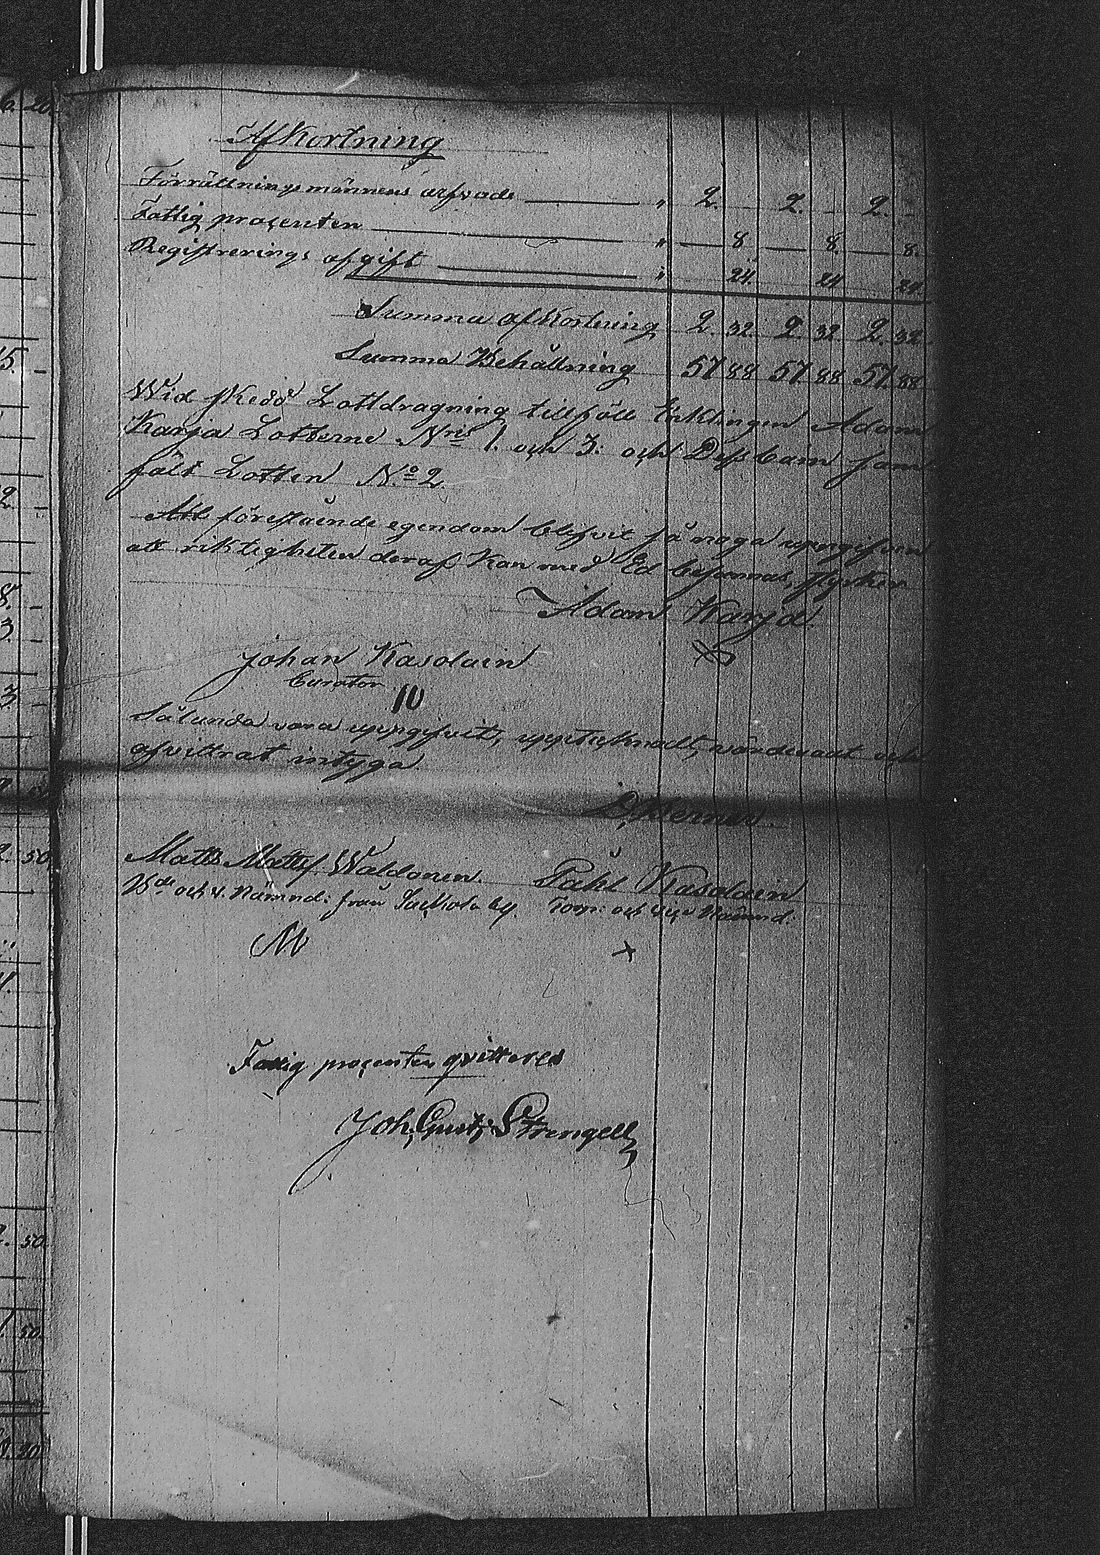 Afkortning
Förrättningsmännens arfvode — " 2. — 2. — 2. —
Fattig procenten — " — 8 — 8. — 8.
Registrerings afgift — " 24. 24 24.
Summa afkortning 2 32. 2. 32. 2. 32.
Summa Behållning 57 88 57 88 57 88
Wid skedd Lottdragning tillföll Enklingen Adam
Karja Lotterne Nris 1. och 3. och Dess barn sam-
fält Lotten No 2
Att förestående egendom blifvit så noga uppgifven
att riktigheten deraf kan med Ed besannas, styrker
Adam Karja
Johan Kasolain
Curator
10
Sålunda vara uppgifvit, upptecknatt, värderat och
afvittrat intyga.
Matts Matts Waldonen. Påhl Kasolain
Bde och v. Nämnd: från by. Torp: och Nämnd.
M x
Fattig procenten qvitteres
Joh. Gust. Strengell
6. 20.
15. -
2. -
8. -
3. -
3 -
2. 50
2. 50.
1. 50.